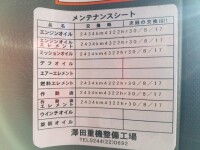 メンテナンスシート
品名 交換時 次回の交換
エンジンオイル 2434km4322h・30/8/17
エンジンエレメント 2434km4322h・30/8/17
ミッションオイル 2434km4322h・30/8/17
デフオイル
エアーエレメント 2434km4322h・30/8/17
燃料エレメント 2434km4322h・30/8/17
作動油 2434km4322h・30/8/17
2434km4322h・30/8/17
ウインチオイル 2434km4322h・30/8/17
旋回オイル 2434km4322h・30/8/17
澤田重機整備工場
TEL0244(22)0692